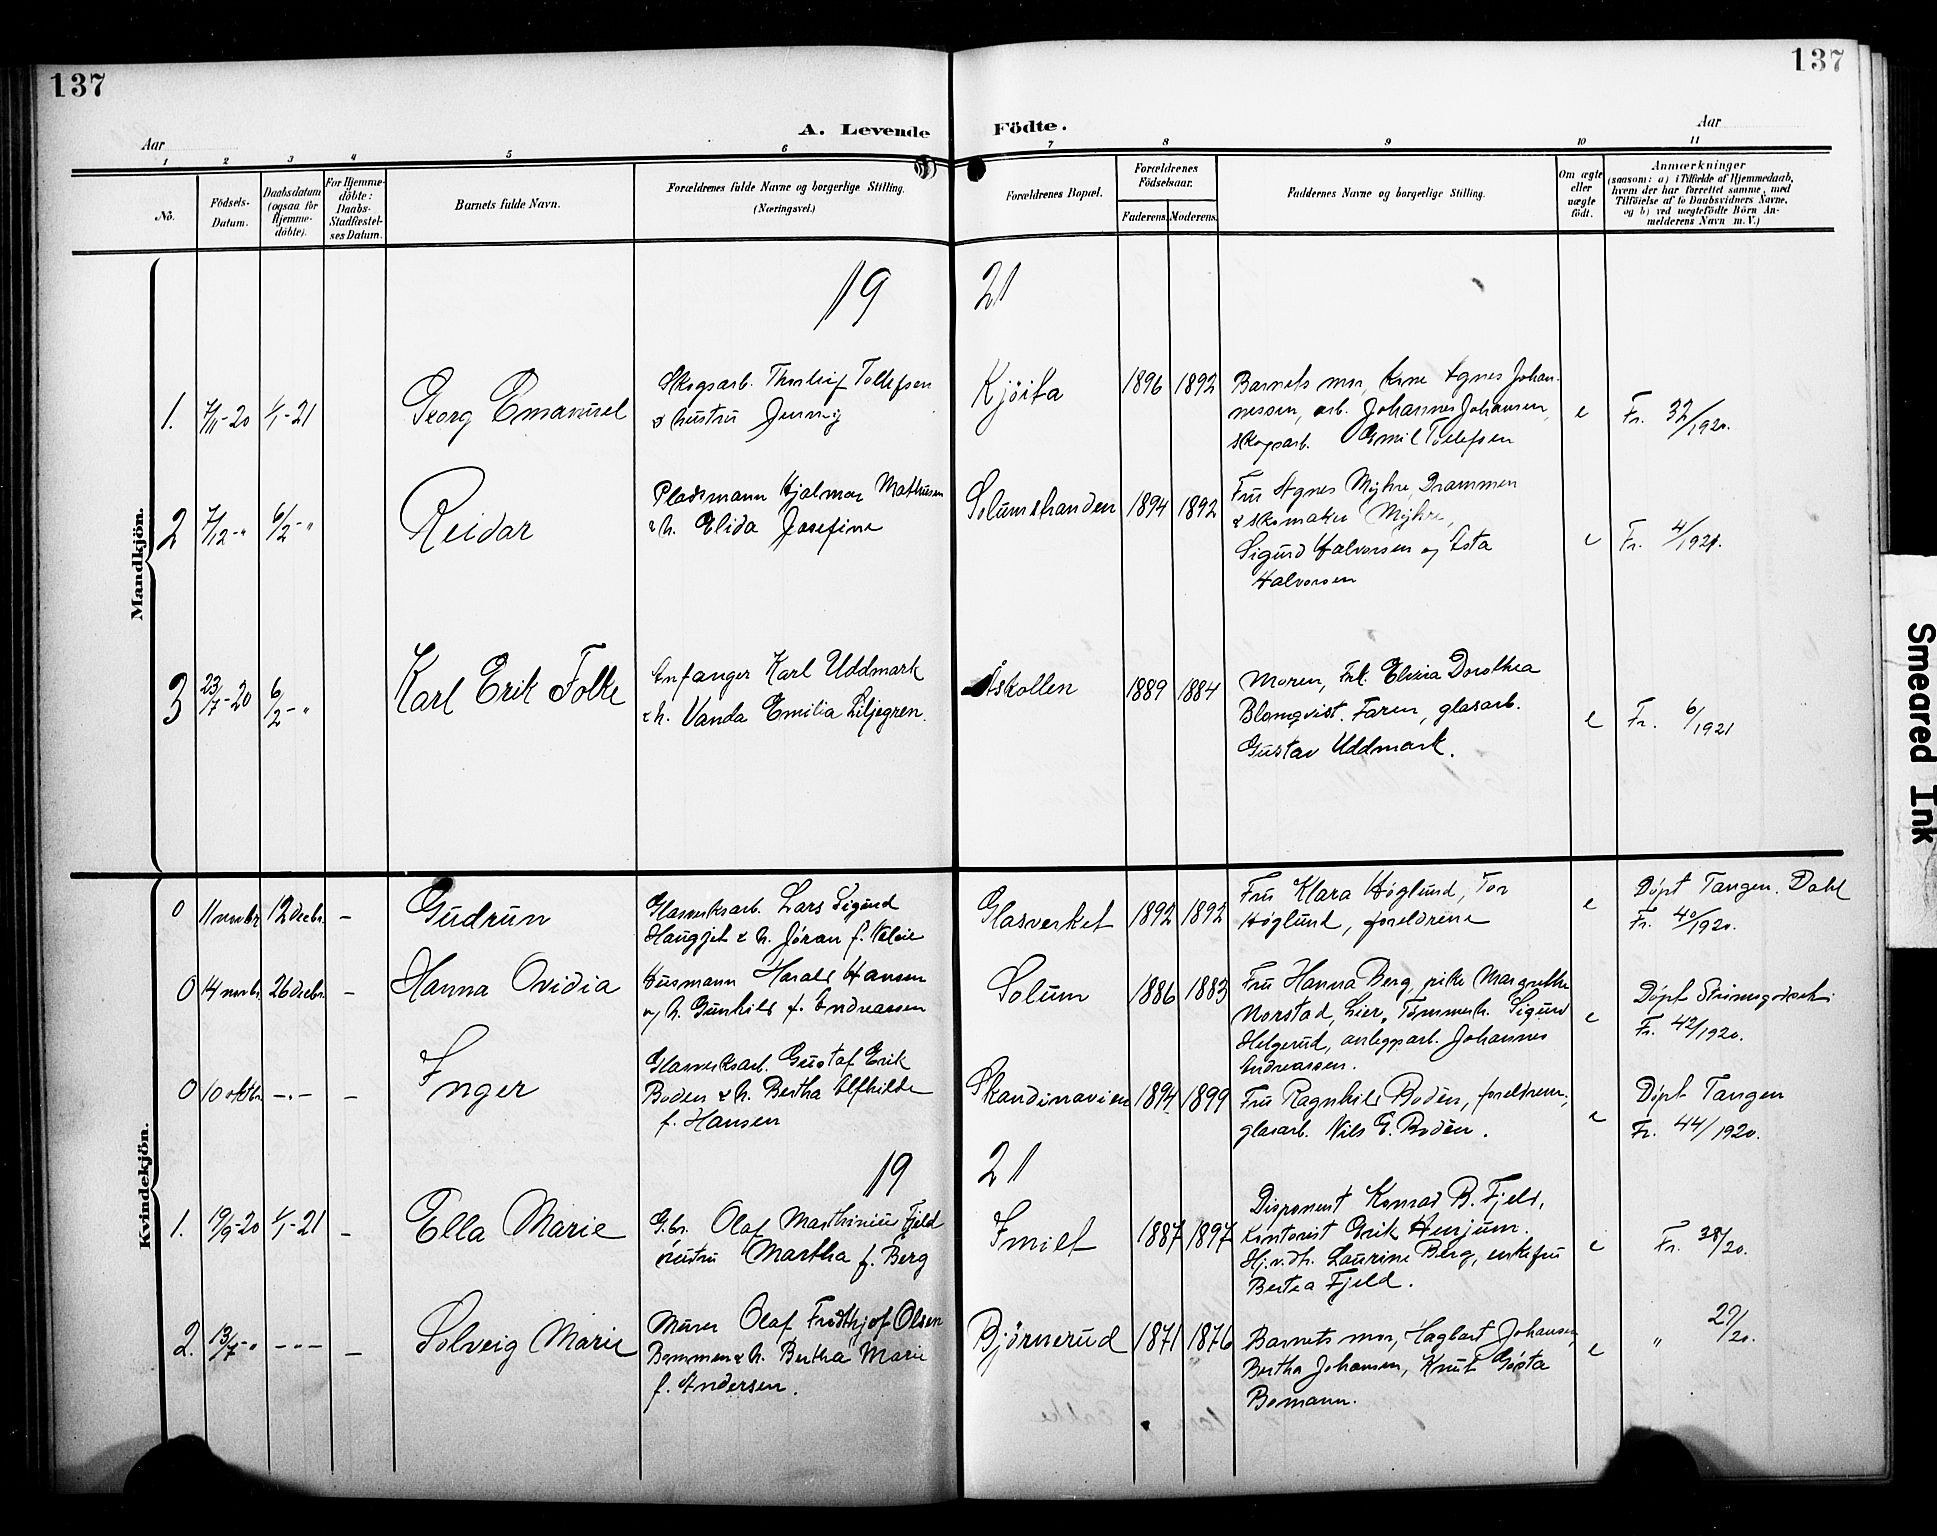 137
137
A. Levende Födte.
Aar
Aar
1 2 3 4 5 6 7 8 9 10 11
No.
Födsels-Datum.
Daabsdatum (ogsaa for Hjemme-döbte).
For Hjemme-döbte: Daabs-Stadfæstel-ses Datum.
Barnets fulde Navn.
Forældrenes fulde Navne og borgerlige Stilling.
(Næringsvei.)
Forældrenes Bopæl.
Forældrenes Födselsaar.
Faderens. Moderens.
Faddernes Navne og borgerlige Stilling.
Om ægte eller uægte födt.
Anmærkninger
(saasom: a) i Tilfælde af Hjemmedaab,
hvem der har forrettet samme, med
Tilföielse af to Daabsvidners Navne,
og b) ved uægtefödte Börn An-
melderens Navn m. V.)
Mandkjön.
19 21
1. 7/11-20 1/1-21 Georg Emanuel
Skogsarb. Thorleif Tollefsen
& hustru Jenny
Kjösta 1896 1892
Barnets mor, kone Agnes Johan-
nessen, arb. Johannes Johansen,
skogsarb. Emil Tollefsen
e Fr. 32/1920.
2 7/12-" 6/2-" Reidar
Pladsmann Hjalmar Mathisen
& h. Elida Josefine
Solumstranden 1894 1892
Fru Agnes Myhre, Drammen
& skomaker Myhre,
Sigurd Halvorsen og Asta
Halvorsen
e Fr. 4/1921.
3 23/7-20 6/2-" Karl Erik Folke
Anfanger Karl Uddmark
& h. Vanda Emilia Liljegren.
Åskollen 1889 1884
Moren, Frk. Elvira Dorothea
Blomqvist. Faren, glasarb.
Gustav Uddmark.
e Fr. 6/1921
Kvindekjön.
0 11 novbr. 12 decbr. - Gudrun
Glasverksarb. Lars Sigurd
Haugjel & h. Jöran f.
Glasverket 1892 1892
Fru Klara Höglund, Tor
Höglund, foreldrene
e Döpt Tangen. Dahl
Fr. 40/1920.
0 14 novbr. 26 decbr. - Hanna Ovidia
Husmann Harald Hansen
og h. Gunhild f. Andreassen
Solum 1886 1883
Fru Hanna Berg, pike Margrethe
Norstad, Lier, Tömmerh. Sigurd
Helgerud, anleggsarb. Johannes
Andreassen.
e Döpt Strömsgodset
Fr. 42/1920.
0 10 oktbr. -"- - Inger
Glasverksarb. Gustaf Erik
Boden & h. Bertha Alfhilde
f. Hansen
Skandinavien 1894 1899
Fru Ragnhild Bodén, foreldrene,
glasarb. Nils G. Bodén.
e Döpt Tangen
Fr. 44/1920.
19 21
1. 19/9-20 1/1-21 - Ella Marie
Gbr. Olaf Marthinius Fjeld
hustru Martha f. Berg
Smilt 1887 1897
Disponent Konrad B. Fjeld,
Kontorist Erik Hurjum.
Laurine Berg, enkefru
Bertea Fjeld.
e Fr. 38/20.
2. 13/7-" --- - Solveig Marie
Murer Olaf Fredthjof Olsen
Bommen & h. Bertha Marie
f. Andersen.
Björnerud 1871 1876
Barnets mor, Hagbart Johansen,
Bertha Johansen, Knut Gösta
Bomann.
e " 21/20.
Smeared Ink